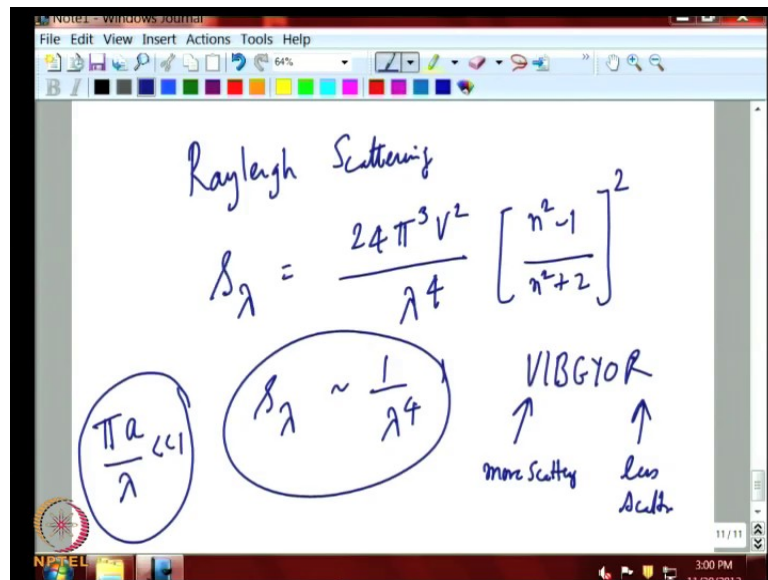 Note1 - Windows Journal
File Edit View Insert Actions Tools Help
64%
B I
Rayleigh Scattering
S_λ = 24π³V²/λ⁴ [n²-1/n²+2]²
πa/λ <<1
S_λ ~ 1/λ⁴
VIBGYOR
more Scatty
less Scattr
11/11
NPTEL
3:00 PM